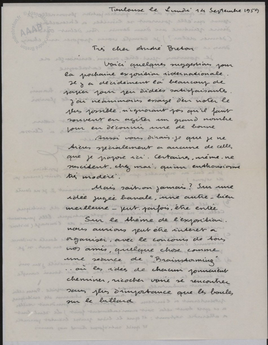 Toulouse le Lundi 14 Septembre 1959
Très cher André Breton
Voici quelques suggestions pour
la prochaine exposition internationale.
Il y a décidément là beaucoup de
papier pour peu d'idées satisfaisantes
J'ai néanmoins essayé d'en noter le
plus possible n'ignorant pas qu'il faut
souvent en agiter un grand nombre
pour en découvrir une de bonne
Aussi vous dirai-je que je ne
tiens spécialement à aucune de celles
que je propose ici. Certaines, même, ne
suscitent chez moi, qu'un enthousiasme
très modéré.
Mais sait-on jamais? Sur une
idée jugée banale, une autre - bien
meilleure - peut parfois, être entée
Sur le thème de l'exposition
nous aurions peut être intérêt à
organiser, avec le concours de tous
nos amis, quelque chose comme
une séance de "Brainstorming"
où les idées de chacun pourraient
cheminer, ricocher voire se rencontrer
sans plus d'importance que les boules
sur le billard.